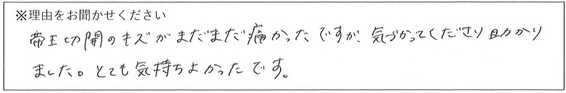 ※理由をお聞かせください
帝王切開のキズがまだまだ痛かったですが、気づかってくださり助かり
ました。とても気持ちよかったです。